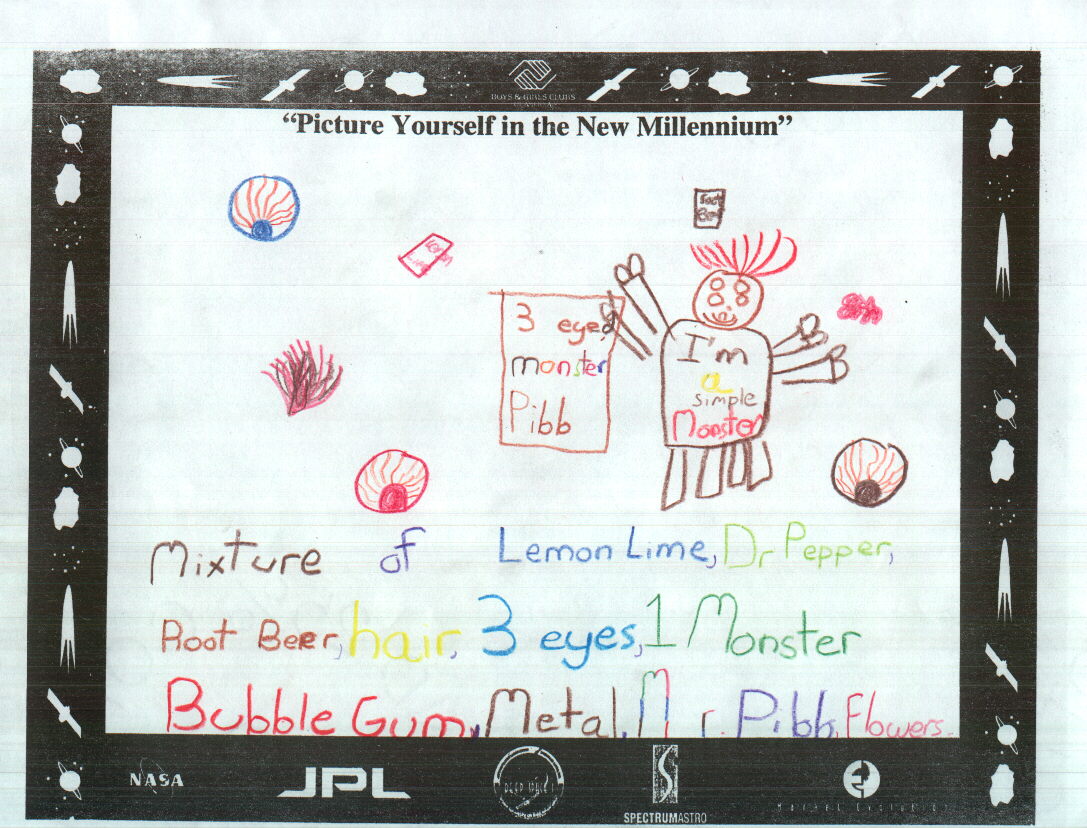 BOYS & GIRLS CLUBS
"Picture Yourself in the New Millennium"
Root
Beer
Lemon
Lime
3 eyed
monster
Pibb
I'm
a
simple
Monster
Mixture of Lemon Lime, Dr Pepper,
Root Beer, hair, 3 eyes, 1 Monster
Bubble Gum, Metal, Mr. Pibb, Flowers.
NASA
JPL
DEEP SPACE 1
SPECTRUMASTRO